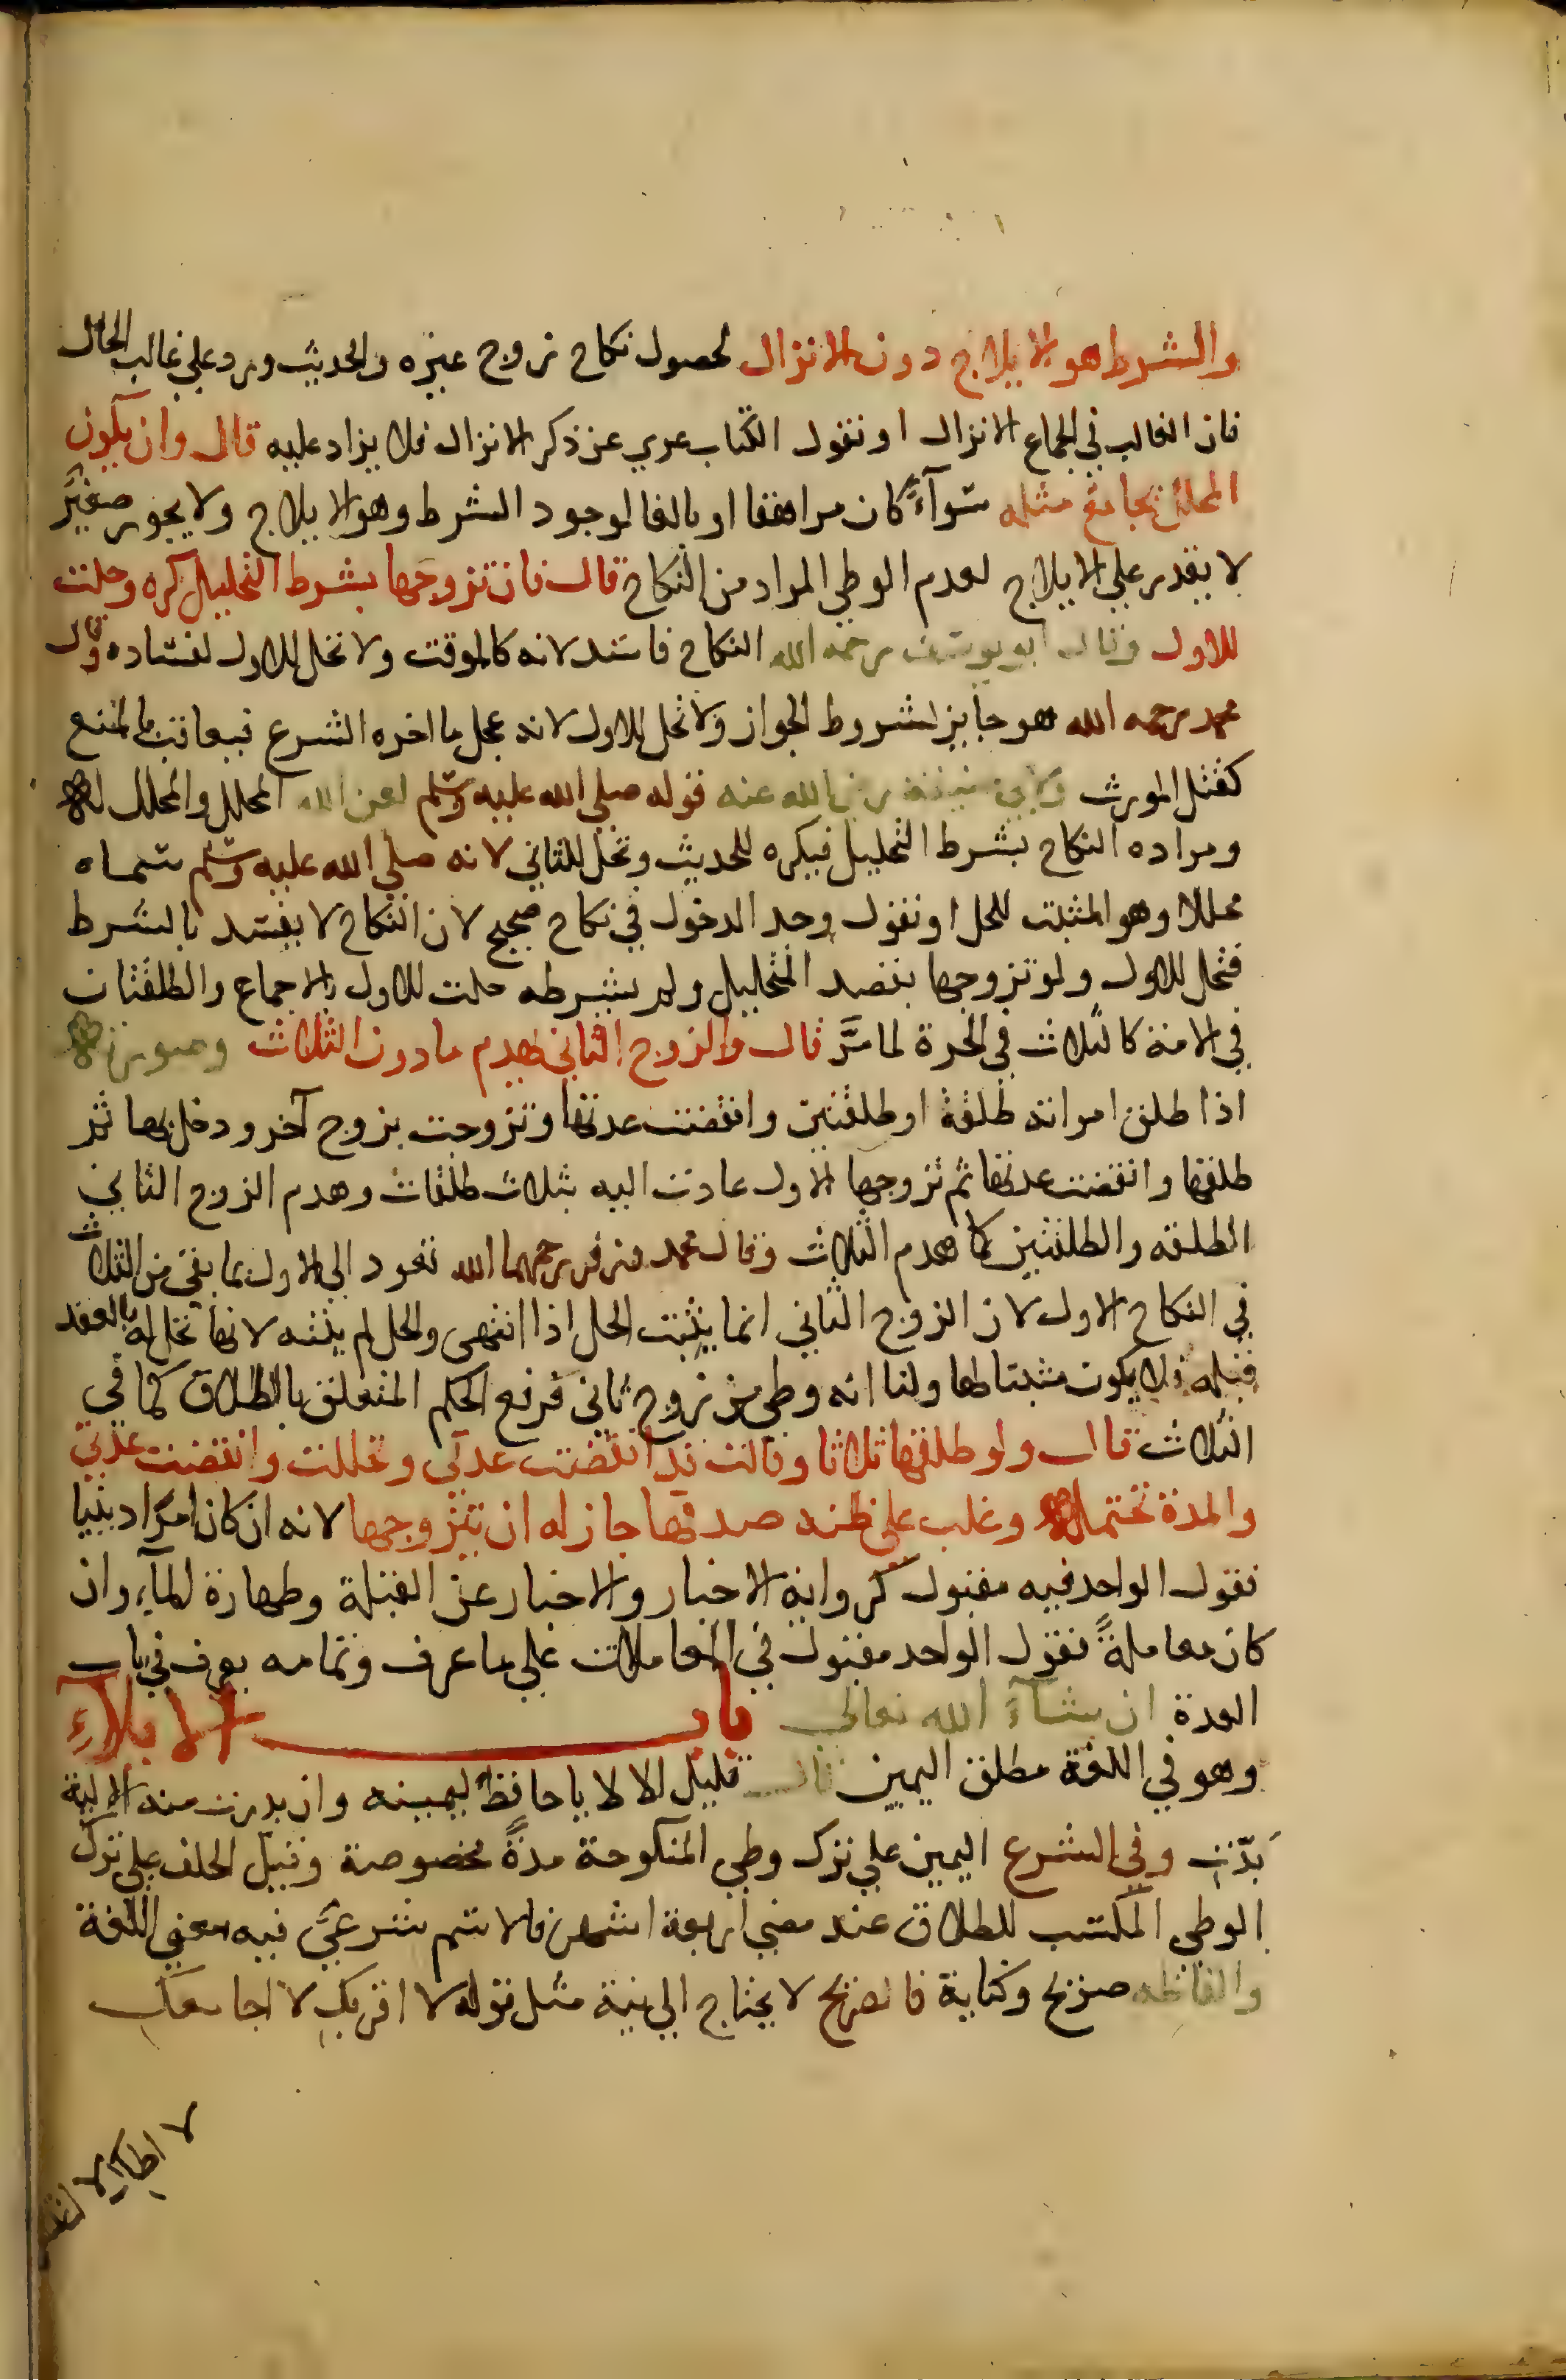 والشرط هو الايلاج دون الانزال لحصول نكاح زوج غيره والحديث ورد علي غالب الحال
فان الغالب في الجماع الانزال او نقول الكتاب عري عن ذكر الانزال فلا يزاد عليه قال وان يكون
المحلل يجامع مثله سوآءً كان مراهقا او بالغا لوجود الشرط وهو الايلاج ولا يجوز صغيرٌ
لا يقدر علي الايلاج لعدم الوطي المراد من النكاح قال فان تزوجها بشرط التحليل كره وحلت
للاول وقال ابو يوسف رحمه الله النكاح فاسد لانه كالموقت ولا تحل للاول لفساده وقال
محمد رحمه الله هو جايز لشروط الجواز ولا تحل للاول لانه عجل ما اخره الشرع فيعاقب بالمنع
كقتل المورث ولابي حنيفة رضي الله عنه قوله صلي الله عليه وسلم لعن الله المحلل والمحلل له
ومراده النكاح بشرط التحليل فيكره للحديث وتحل للثاني لانه صلي الله عليه وسلم سماه
محللا وهو المثبت للحل او نقول وجد الدخول في نكاح صحيح لان النكاح لا يفسد بالشرط
فتحل للاول ولو تزوجها بقصد التحليل ولم يشرطه حلت للاول بالاجماع والطلقتان
في الامة كالثلاث في الحرة لما مرَّ قال والزوج الثاني يهدم ما دون الثلاث وصورته
اذا طلق امراته طلقة او طلقتين وانقضت عدتها وتزوجت بزوج آخر ودخل بها ثم
طلقها وانقضت عدتها ثم تزوجها الاول عادت اليه بثلاث طلقات وهدم الزوج الثاني
الطلقه والطلقتين كما هدم الثلاث وقال محمد وزفر رحمهما الله تعود الي الاول بما بقي من الثلاث
في النكاح الاول لان الزوج الثاني انما يثبت الحل اذا انتهى والحل لم ينته لانها تحل له بالعقد
قبله فلا يكون مثبتا لها ولنا انه وطي من زوج ثاني فرفع الحكم المتعلق بالطلاق كما في
الثلاث قال ولو طلقها ثلاثا وقالت قد انقضت عدتي وتحللت وانقضت عدتي
والمدة تحتمله وغلب علي ظنه صدقها جاز له ان يتزوجها لانه ان كان امرا دينيا
فقول الواحد فيه مقبول كرواية الاخبار والاخبار عن القبلة وطهارة المآء وان
كان معاملةً فقول الواحد مقبول في المعاملات علي ما عرف وتمامه يعرف في باب
العدة ان شآء الله تعالي باب الايلاءِ
وهو في اللغة مطلق اليمين قال قليل الالا يا حافظ ليمينه وان بدرت منه الالية
بَرّتِ وفي الشرع اليمين علي ترك وطي المنكوحة مدةً مخصوصة وقيل الحلف علي ترك
الوطي المكسب للطلاق عند مضي اربعة اشهر فالاسم شرعيَّ فيه معني اللغة
والفاظه صريح وكناية فالصريح لا يحتاج الي نية مثل قوله لا اقربكِ لا اجامعكِ
لا اطاكِ لا